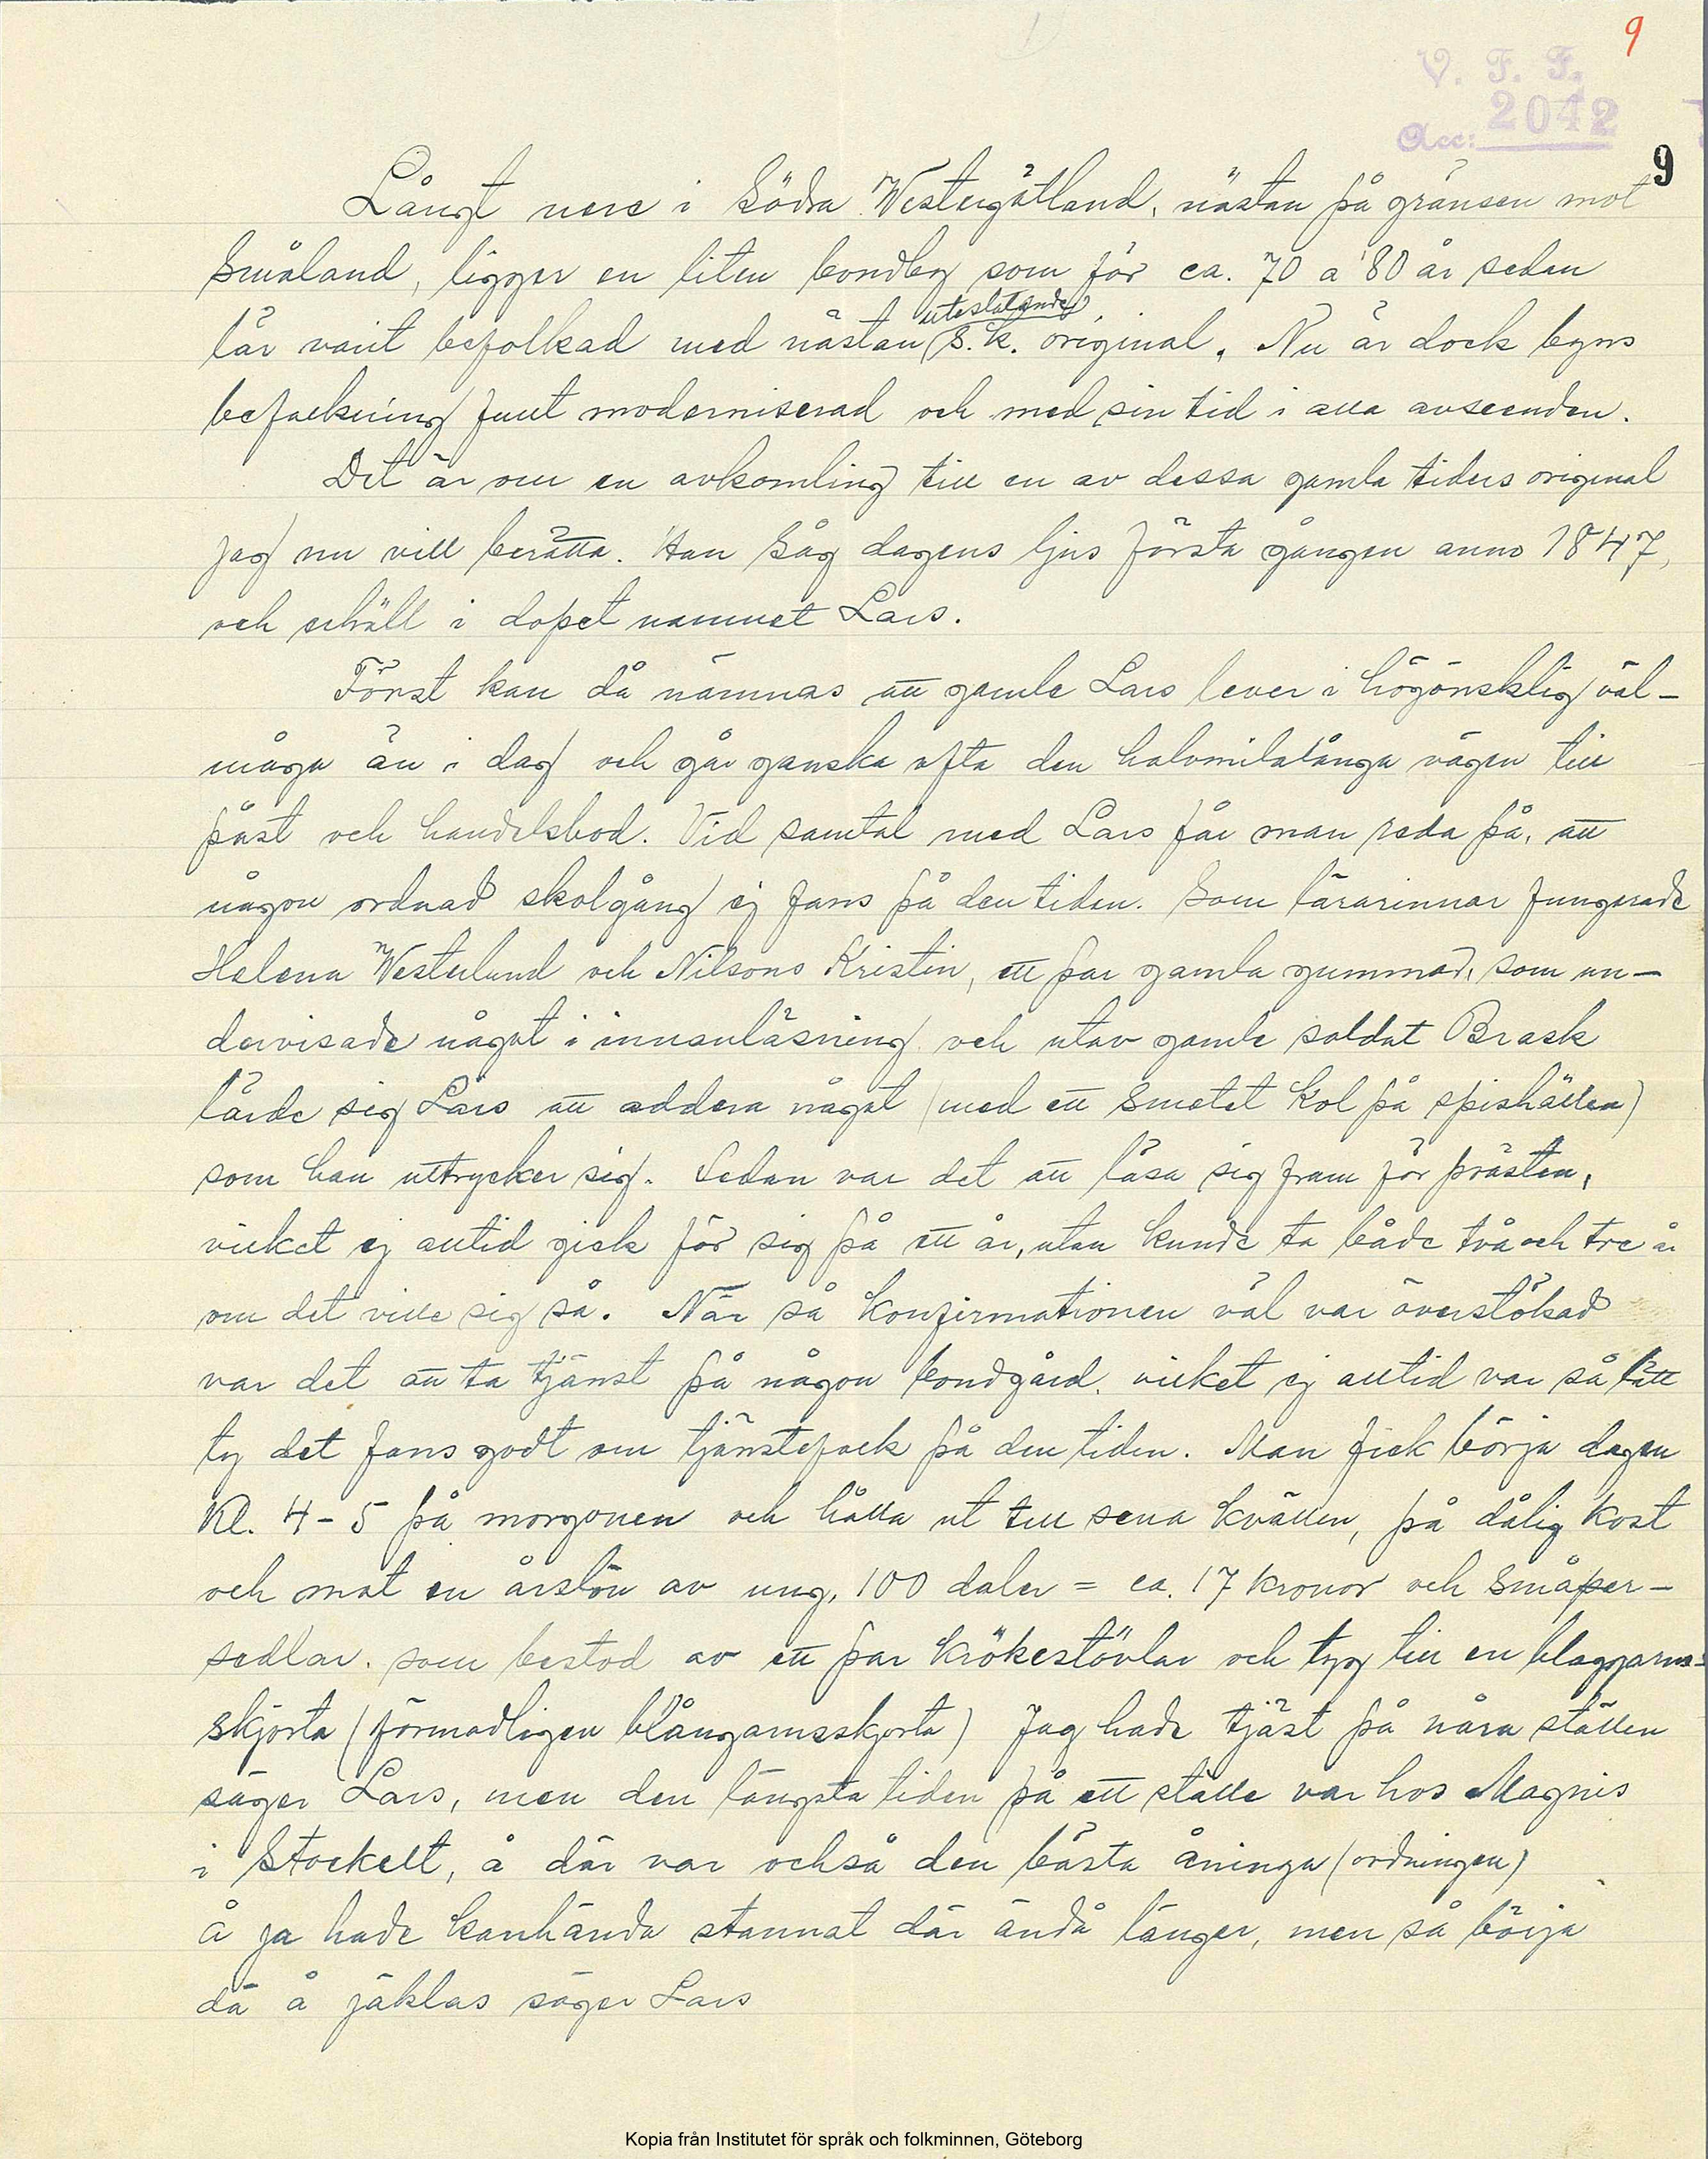 9
V. F. F.
Acc: 2042
9
Långt nere i Södra Westergötland, nästan på gränsen mot
Småland, ligger en liten bondby som för ca. 70 a 80 år sedan
uteslutande
lär varit befolkad med nästan s.k. original. Nu är dock byns
befolkning fullt moderniserad och med sin tid i alla avseenden.
Det är om en avkomling till en av dessa gamla tiders original
jag nu vill berätta. Han såg dagens ljus första gången anno 1847,
och erhöll i dopet namnet Lars.
Först kan då nämnas att gamle Lars lever i högönsklig väl-
måga än i dag och går ganska ofta den halvmilalånga vägen till
påst och handelsbod. Vid samtal med Lars får man reda på, att
någon ordnad skolgång ej fans på den tiden. Som lärarinnor fungerade
Helena Westerlund och Nilsons Kristin, ett par gamla gummor, som un-
dervisade något i innanläsning och utav gamle soldat Brask
lärde sig Lars att addera något (med ett smetet kol på spishällen)
som han uttrycker sig. Sedan var det att läsa sig fram för prästen,
vilket ej alltid gick för sig på ett år, utan kunde ta både två och tre år
om det ville sig så. När så konfirmationen väl var överstökad
var det att ta tjänst på någon bondgård, vilket ej alltid var så lätt
ty det fans godt om tjänstefolk på den tiden. Man fick börja dagen
Kl. 4-5 på morgonen och hålla ut till sena kvällen, på dålig kost
och mot en årslön av ung. 100 daler = ca. 17 kronor och småper-
sedlar. som bestod av ett par krökestövlar och tyg till en blaggarns-
skjorta (förmodligen blångarnsskjorta) Jag hade tjäst på nåra ställen
säger Lars, men den längsta tiden på ett ställe var hos Magnis
i Stockelt, å där var också den bästa åninga (ordningen)
å ja hade kanhända stannat där ändå länger, men så börja
dä å jäklas säger Lars
Kopia från Institutet för språk och folkminnen, Göteborg